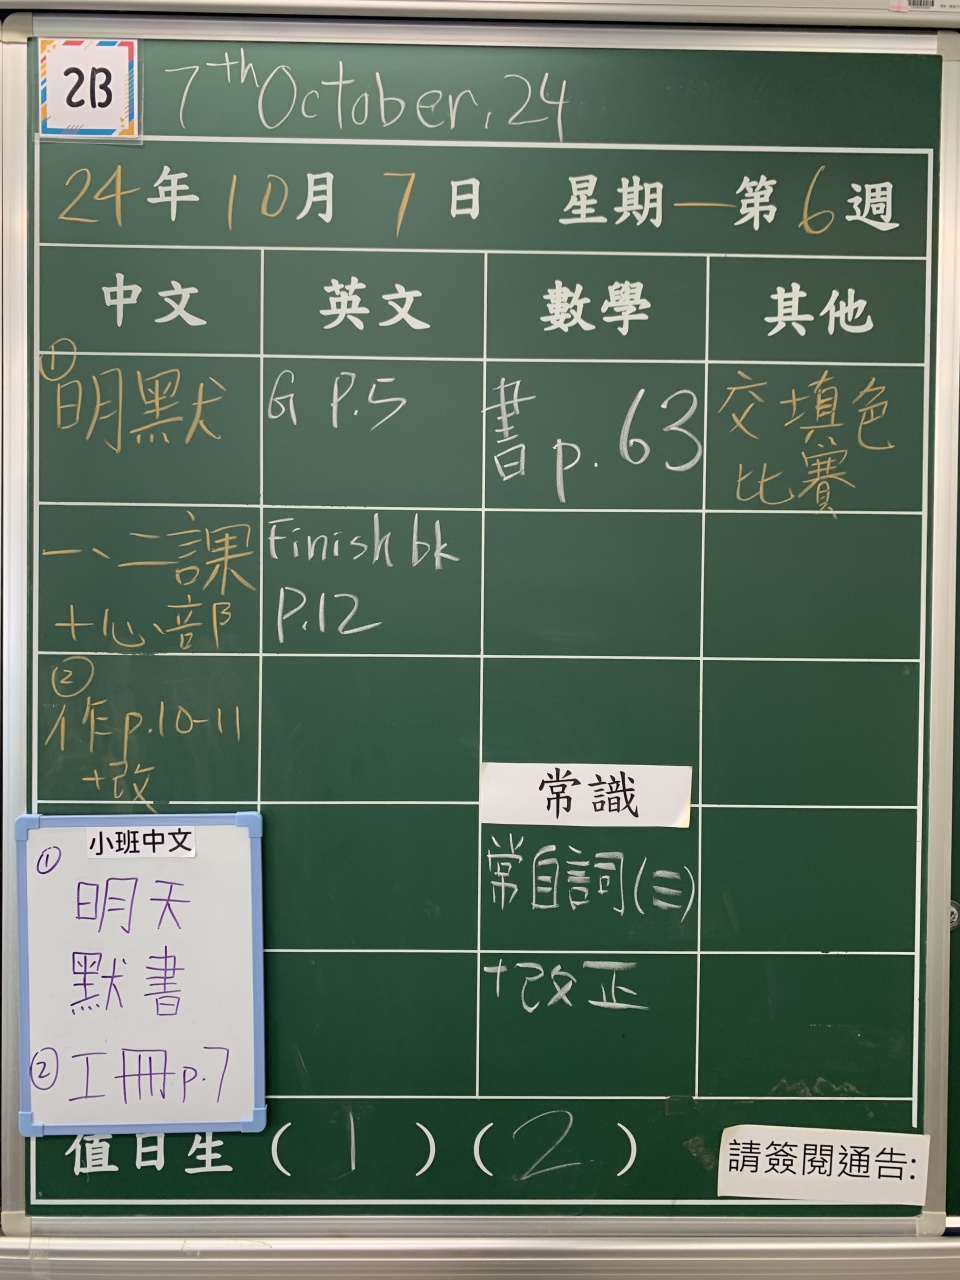 2B
7th October, 24
24年10月7日 星期一第6週
中文 英文 數學 其他
①
明默
一、二課
+心部
②
作p.10-11
+改
G P.5
Finish bk
P.12
書p. 63
交填色
比賽
常識
常自詞(三)
+改正
小班中文
①
明天
默書
② 工冊p.7
值日生 ( 1 ) ( 2 )
請簽閱通告: